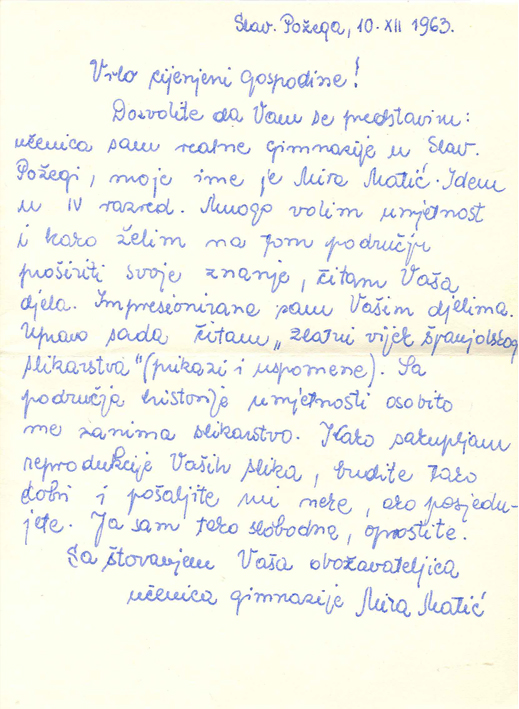 Slav. Požega, 10. XII 1963.
Vrlo cijenjeni gospodine!
Dozvolite da Vam se predstavim:
učenica sam realne gimnazije u Slav.
Požegi, moje ime je Mira Matić. Idem
u IV razred. Mnogo volim umjetnost
i kako želim na tom području
proširiti svoje znanje, čitam Vaša
djela. Impresionirana sam Vašim djelima.
Upravo sada čitam „Zlatni vijek španjolskog
slikarstva" (prikazi i uspomene). Sa
područja historije umjetnosti osobito
me zanima slikarstvo. Kako sakupljam
reprodukcije Vaših slika, budite tako
dobri i pošaljite mi neke, ako posjedu-
jete. Ja sam tako slobodna, oprostite.
Sa štovanjem Vaša obožavateljica
učenica gimnazije Mira Matić